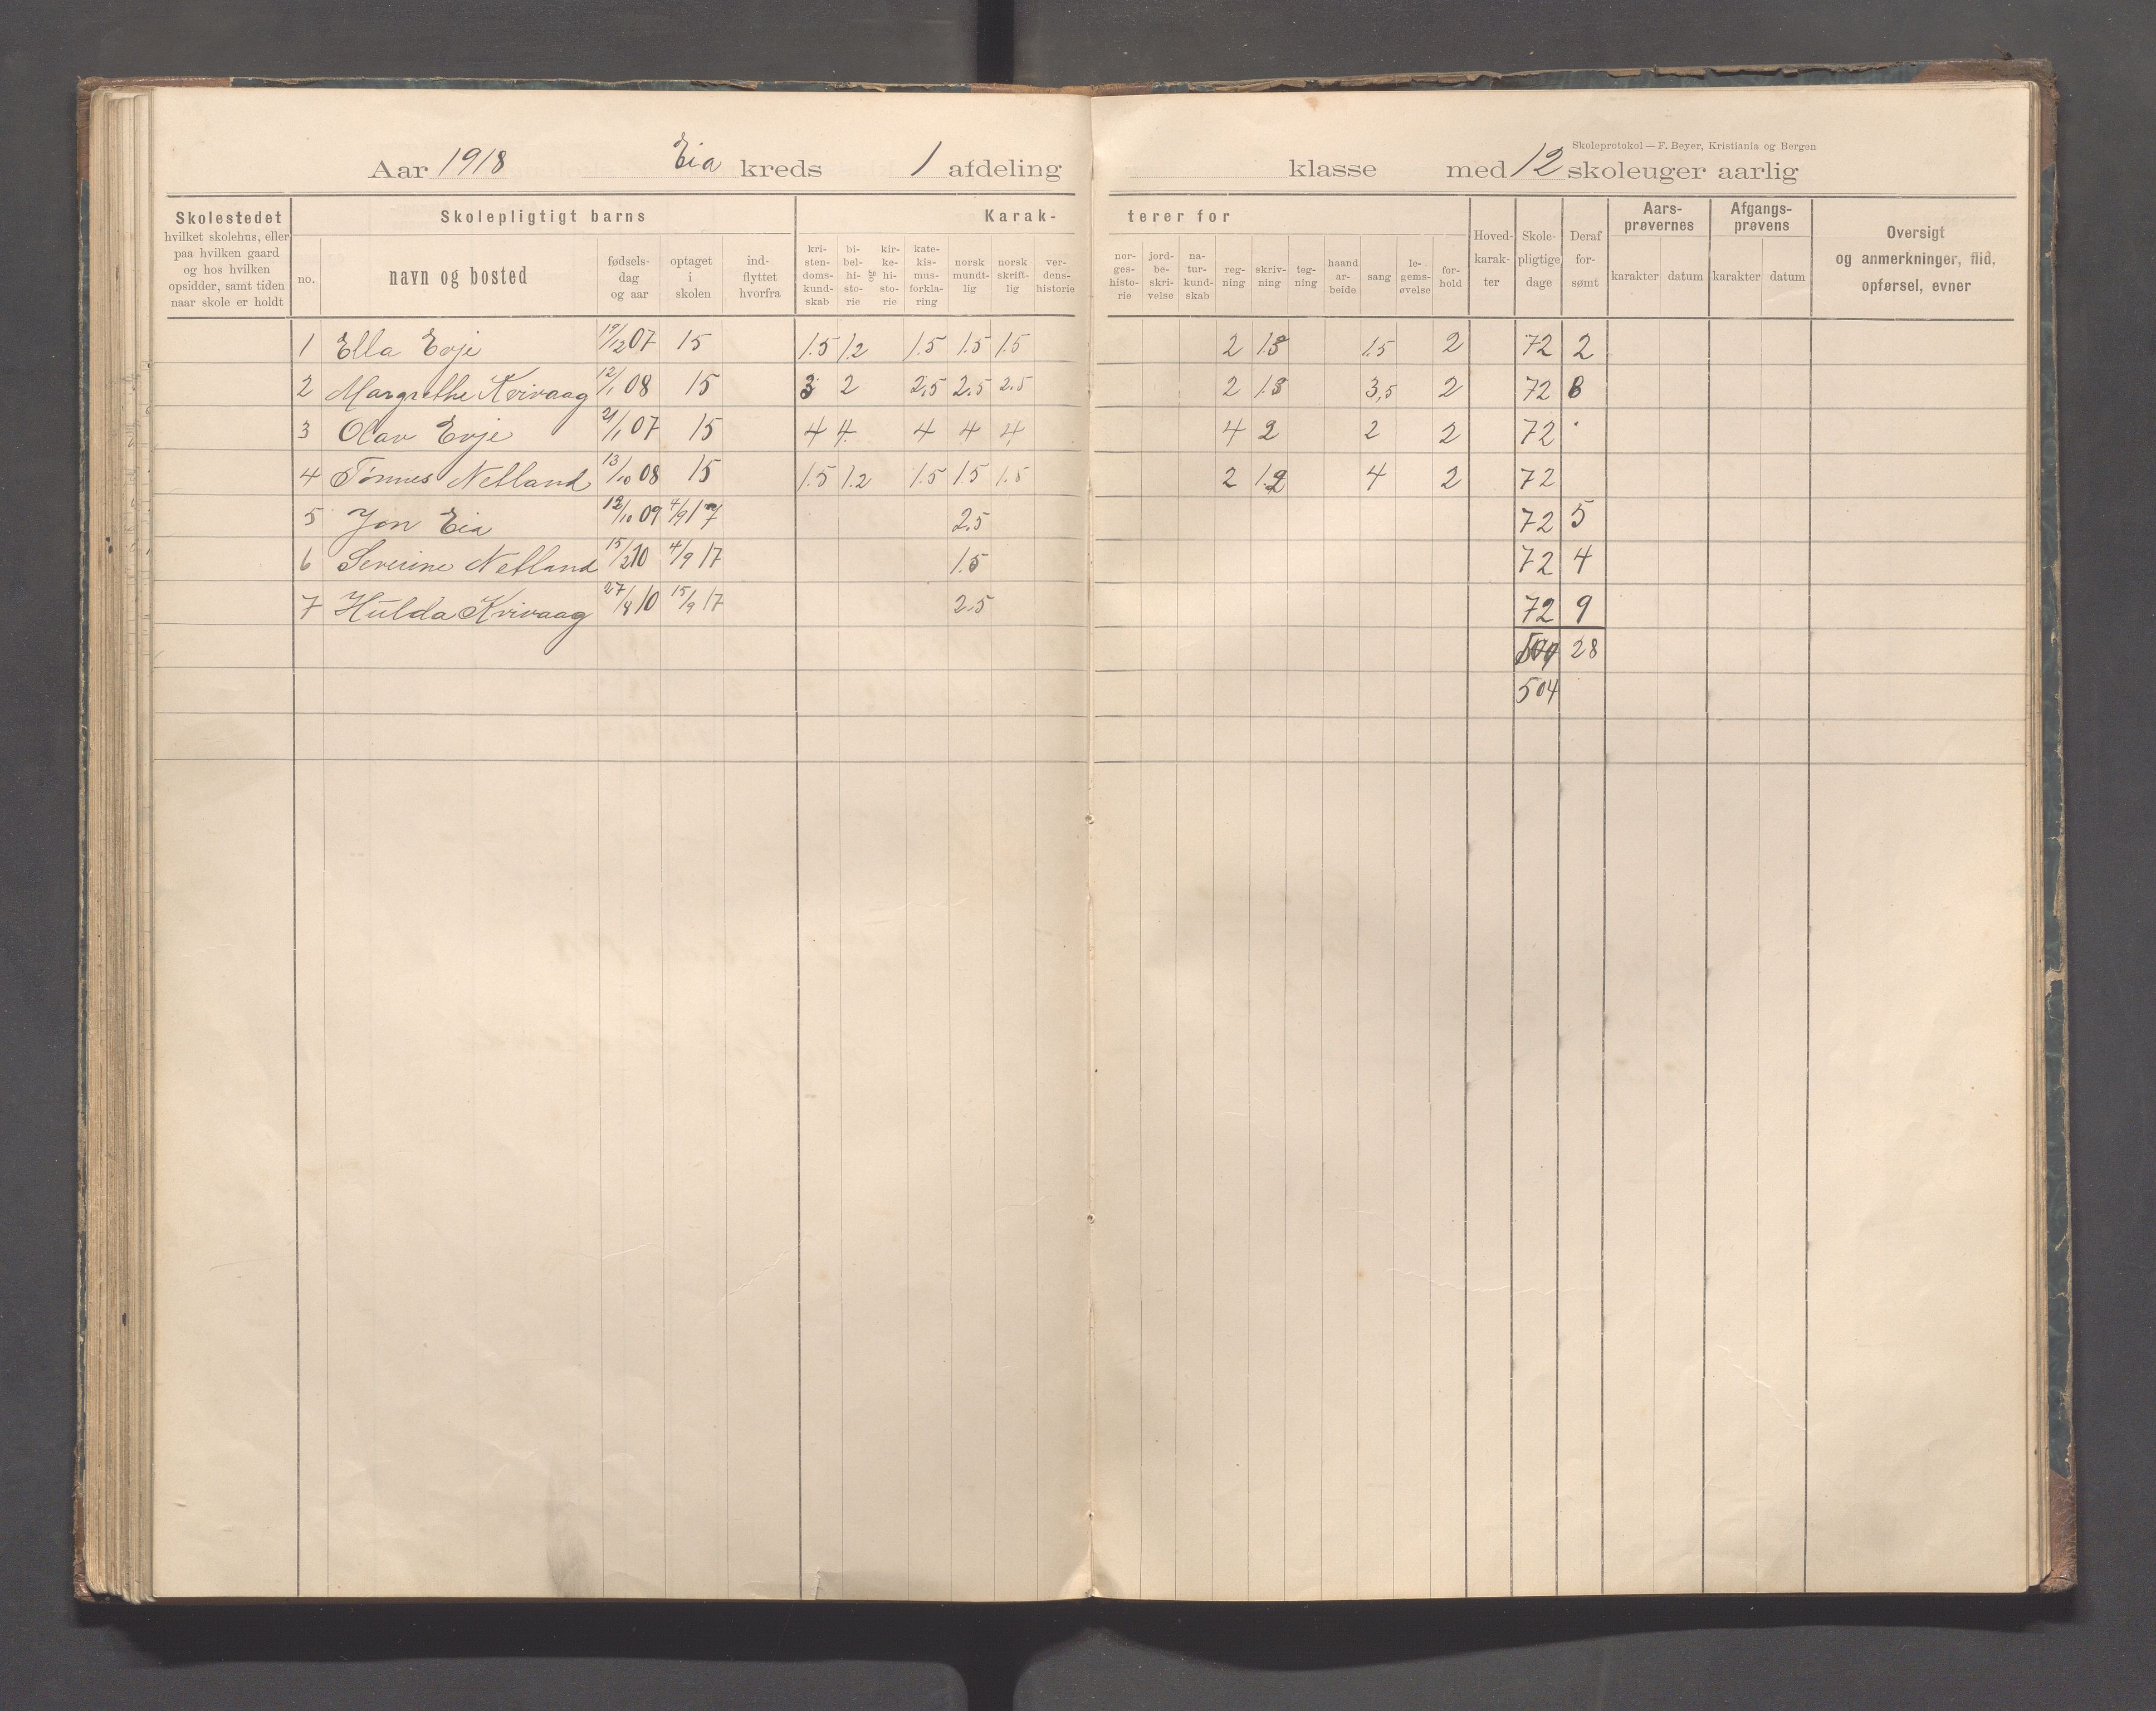 Skoleprotokol — F. Beyer, Kristiania og Bergen
Aar 1918 Eia kreds 1 afdeling klasse med 12 skoleuger aarlig
Skolestedet
hvilket skolehus, eller
paa hvilken gaard
og hos hvilken
opsidder, samt tiden
naar skole er holdt
Skolepligtigt barns
no.
navn og bosted
fødsels-
dag
og aar
optaget
i
skolen
ind-
flyttet
hvorfra
Karak-
kri-
sten-
doms-
kund-
skab
bi-
bel-
hi-
sto-
rie
og
kir-
ke-
hi-
sto-
rie
kate-
kis-
mus-
forkla-
ring
norsk
mundt-
lig
norsk
skrift-
lig
ver-
dens-
historie
terer for
nor-
ges-
histo-
rie
jord-
be-
skri-
velse
na-
tur-
kund-
skab
reg-
ning
skriv-
ning
teg-
ning
haand
ar-
beide
sang
le-
gems-
øvelse
for-
hold
Hoved-
karak-
ter
Skole-
pligtige
dage
Deraf
for-
sømt
Aars-
prøvernes
karakter datum
Afgangs-
prøvens
karakter datum
Oversigt
og anmerkninger, flid,
opførsel, evner
1 Ella Evje 19/12 07 15 1.5 1.2 1.5 1.5 1.5 2 1.3 1.5 2 72 2
2 Margrethe Kvivaag 12/1 08 15 3 2 2,5 2.5 2.5 2 1.3 3,5 2 72 8
3 Olav Evje 21/1 07 15 4 4 4 4 4 4 2 2 2 72
4 Tønnes Netland 13/10 08 15 1.5 1.2 1.5 1.5 1.5 2 1.2 4 2 72
5 Jon Eia 12/10 09 4/9 17 2.5 72 5
6 Severine Netland 15/2 10 4/9 17 1.5 72 4
7 Hulda Kvivaag 27/8 10 15/9 17 2.5 72 9
28
504